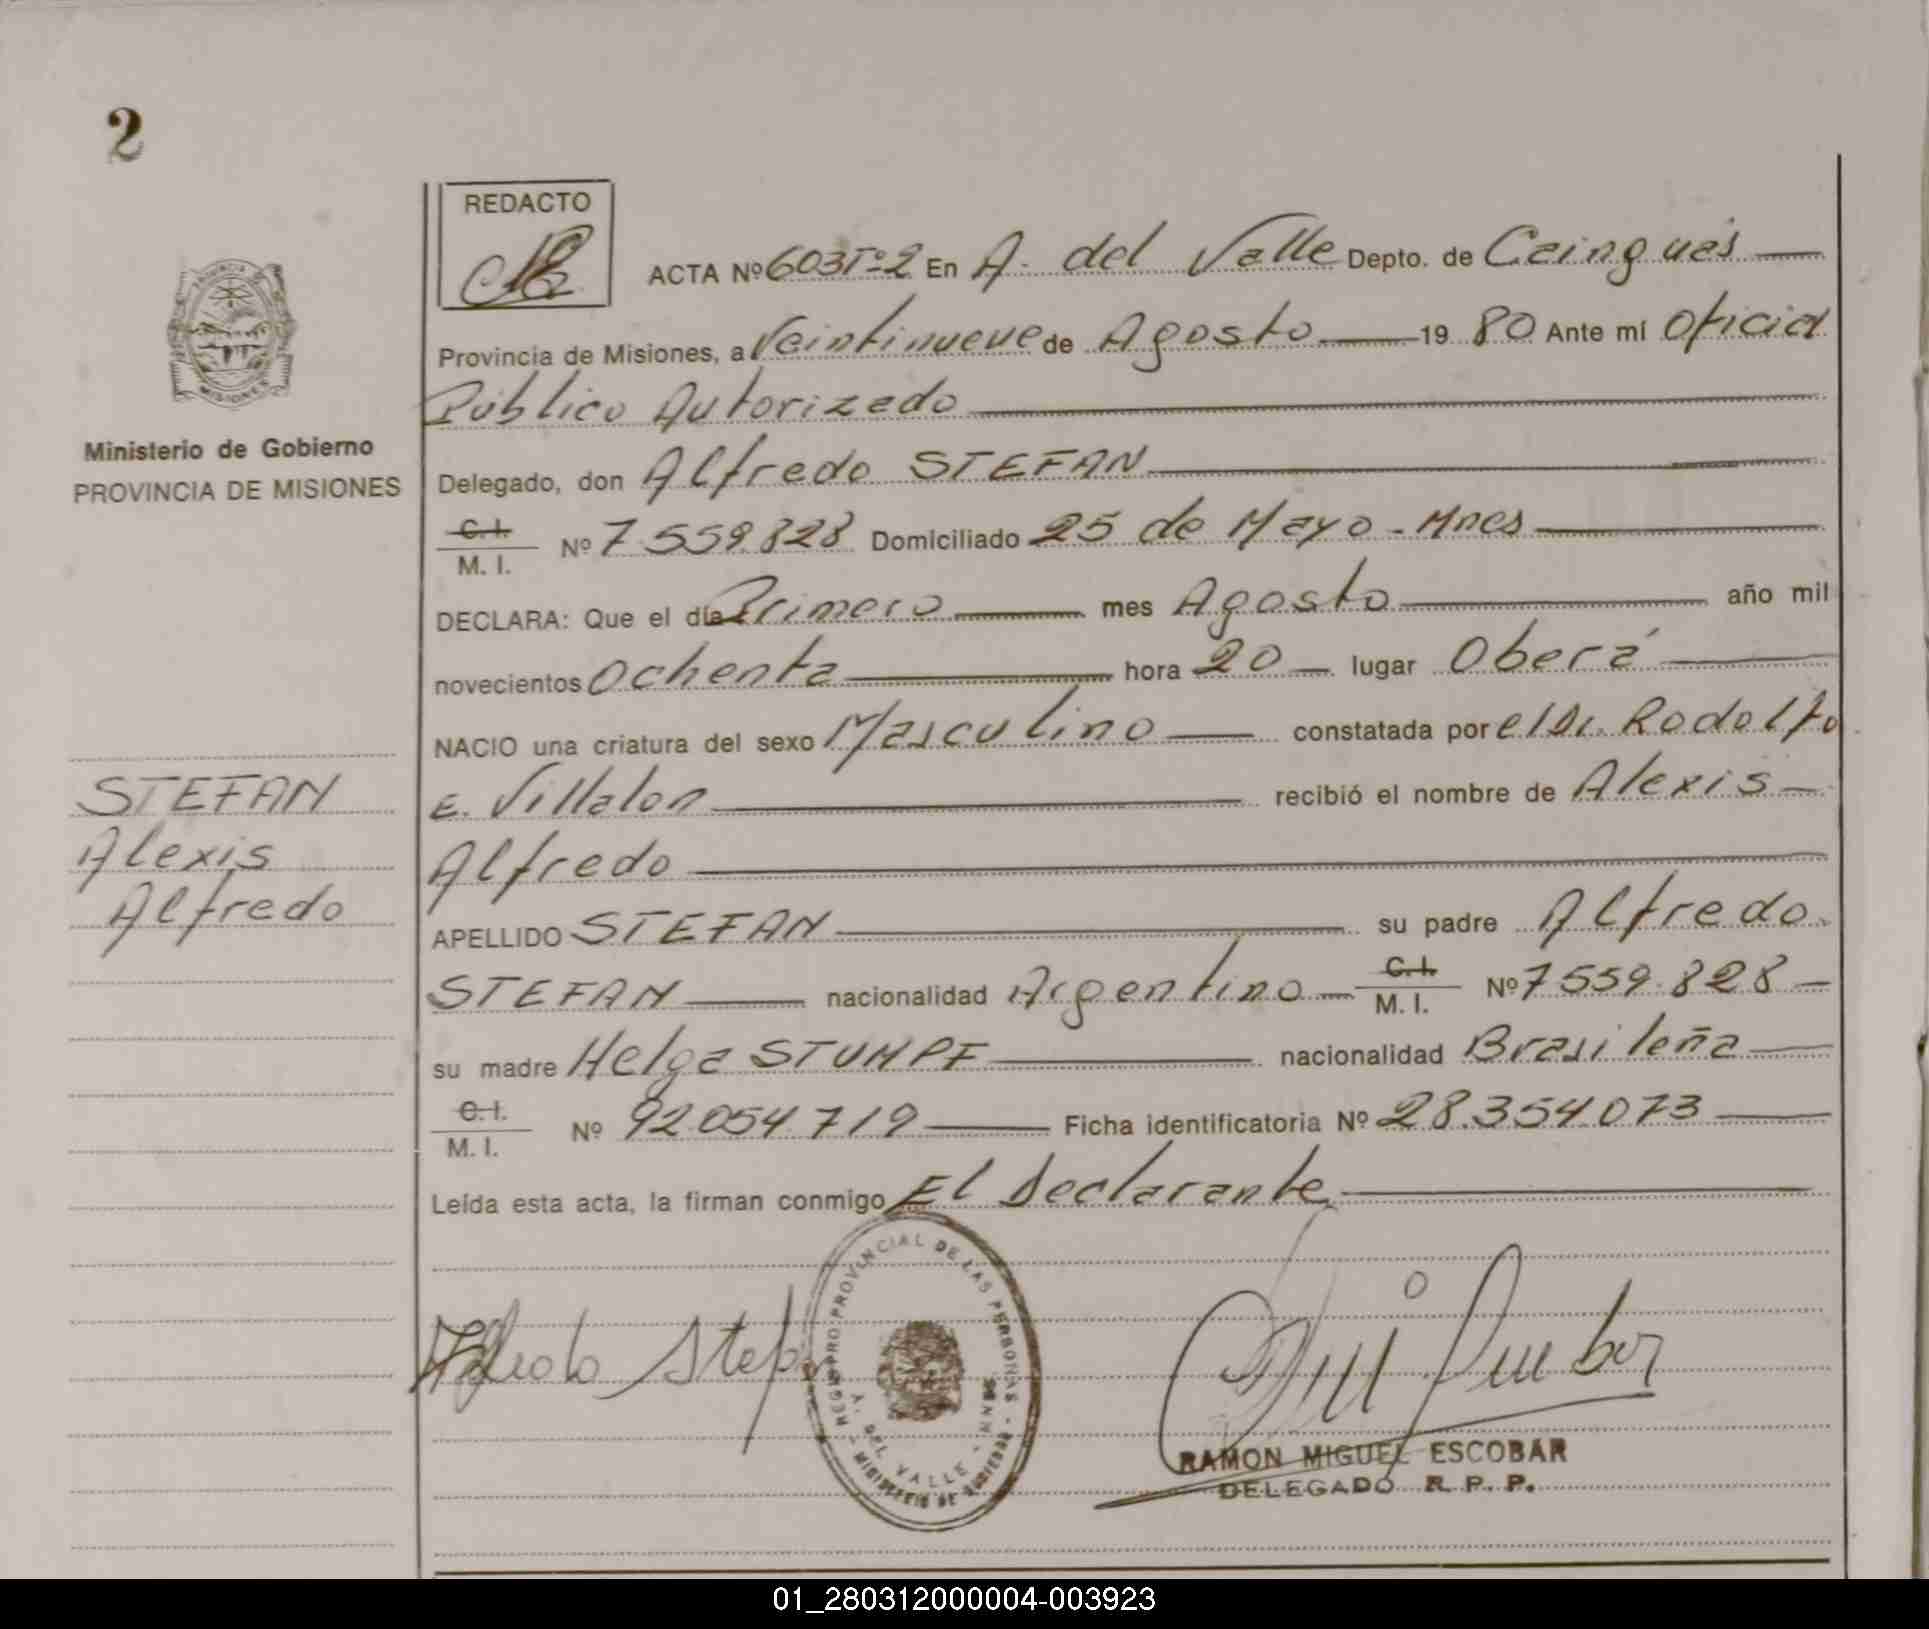 2
REDACTO
ACTA Nº 603 Tº 2 En A. del Valle Depto. de Cainguás
Provincia de Misiones, a Veintinueve de Agosto 19 80 Ante mí Oficial
Público Autorizado
Delegado, don Alfredo STEFAN
C.I. / M. I. Nº 7.559.828 Domiciliado 25 de Mayo - Mnes
DECLARA: Que el día Primero mes Agosto año mil
novecientos Ochenta hora 20 lugar Oberá
NACIO una criatura del sexo Masculino constatada por el Dr. Rodolfo
E. Villalon recibió el nombre de Alexis
Alfredo
APELLIDO STEFAN su padre Alfredo
STEFAN nacionalidad Argentino C.I. / M. I. Nº 7.559.828
su madre Helga STUMPF nacionalidad Brasileña
C.I. / M. I. Nº 92.054.719 Ficha identificatoria Nº 28.354.073
Leída esta acta, la firman conmigo El Declarante
Ministerio de Gobierno
PROVINCIA DE MISIONES
STEFAN
Alexis
Alfredo
PROVINCIA DE
MISIONES
Alfredo Stefan
REGISTRO PROVINCIAL DE LAS PERSONAS
A. DEL VALLE - MNES
MINISTERIO DE GOBIERNO
RAMON MIGUEL ESCOBAR
DELEGADO R. P. P.
01_280312000004-003923